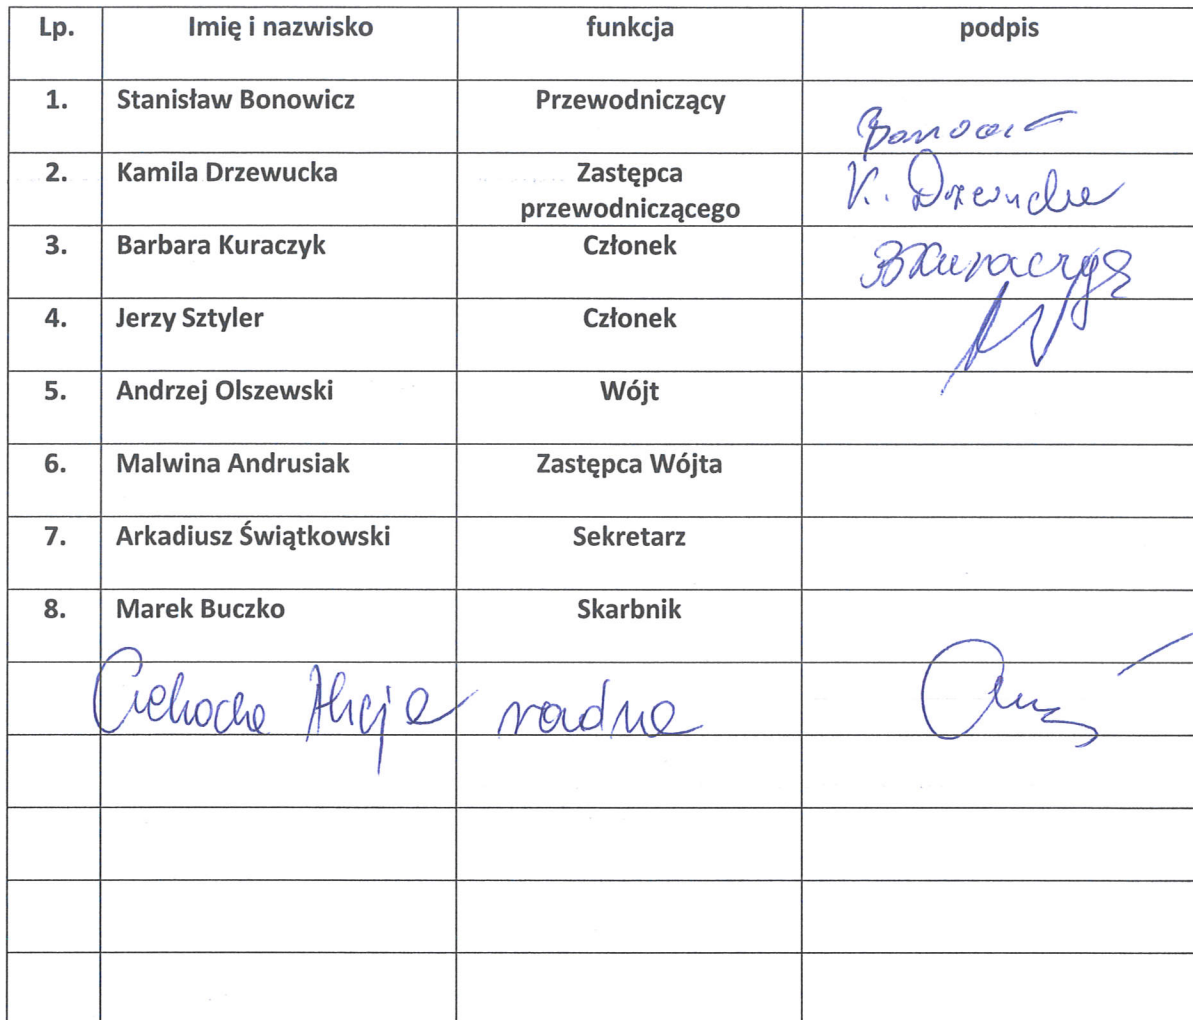 Lp. Imię i nazwisko funkcja podpis
1. Stanisław Bonowicz Przewodniczący
2. Kamila Drzewucka Zastępca
przewodniczącego
K. Drzewucka
3. Barbara Kuraczyk Członek BKuraczyk
4. Jerzy Sztyler Członek
5. Andrzej Olszewski Wójt
6. Malwina Andrusiak Zastępca Wójta
7. Arkadiusz Świątkowski Sekretarz
8. Marek Buczko Skarbnik
Alicja radna